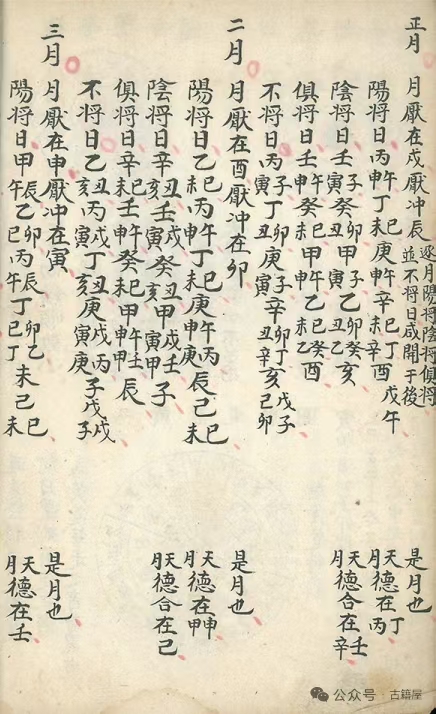 正月 月厭在戌厭冲辰 逐月陽將陰將俱將並不将日咸開于後 是月也
陽将日丙午申丁巳未庚午申辛巳未辛酉戊午 天德在丁月德在丙
陰将日壬子寅癸卯丑甲子寅乙卯丑癸亥 天德合在壬月德合在辛
俱将日壬午申癸巳未甲午申乙巳未乙酉癸酉
不将日丙子寅丁卯丑庚子寅辛卯丑丁亥辛亥戊子己卯
二月 月厭在酉厭冲在卯 是月也
陽将日乙巳未丙午申丁巳未庚午申丙辰庚辰己巳未 天德在申月德在甲
陰将日辛丑亥壬戌寅癸丑亥甲戌寅壬子甲子 天月德合在己
俱将日辛巳未壬午申癸巳未甲午申壬辰甲辰
不将日乙丑亥丙戌寅丁丑亥庚戌寅丙子庚子戊戌戊子
三月 月厭在申厭冲在寅 是月也
陽将日甲辰午乙卯巳丙辰午丁卯巳乙未丁未己巳未 天月德在壬
公众号·古籍屋